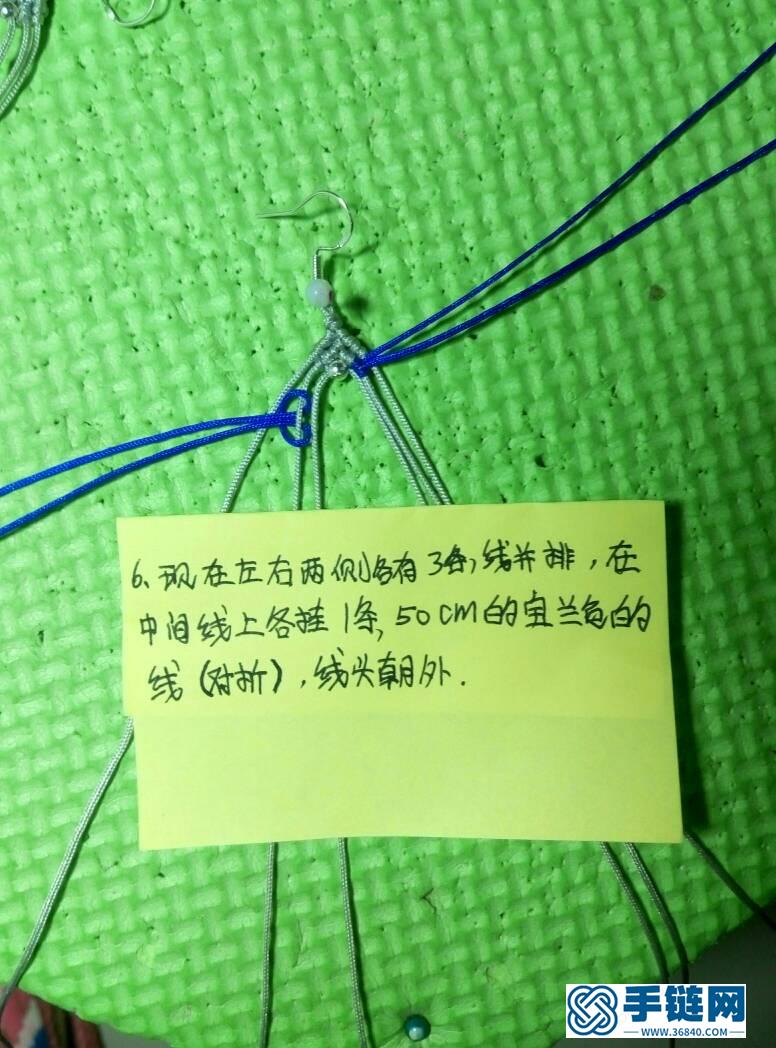 6、现在左右两侧各有3条线并排，在
中间线上各挂1条50cm的宝兰色的
线（对折），线头朝外.
手链网
www.36840.com